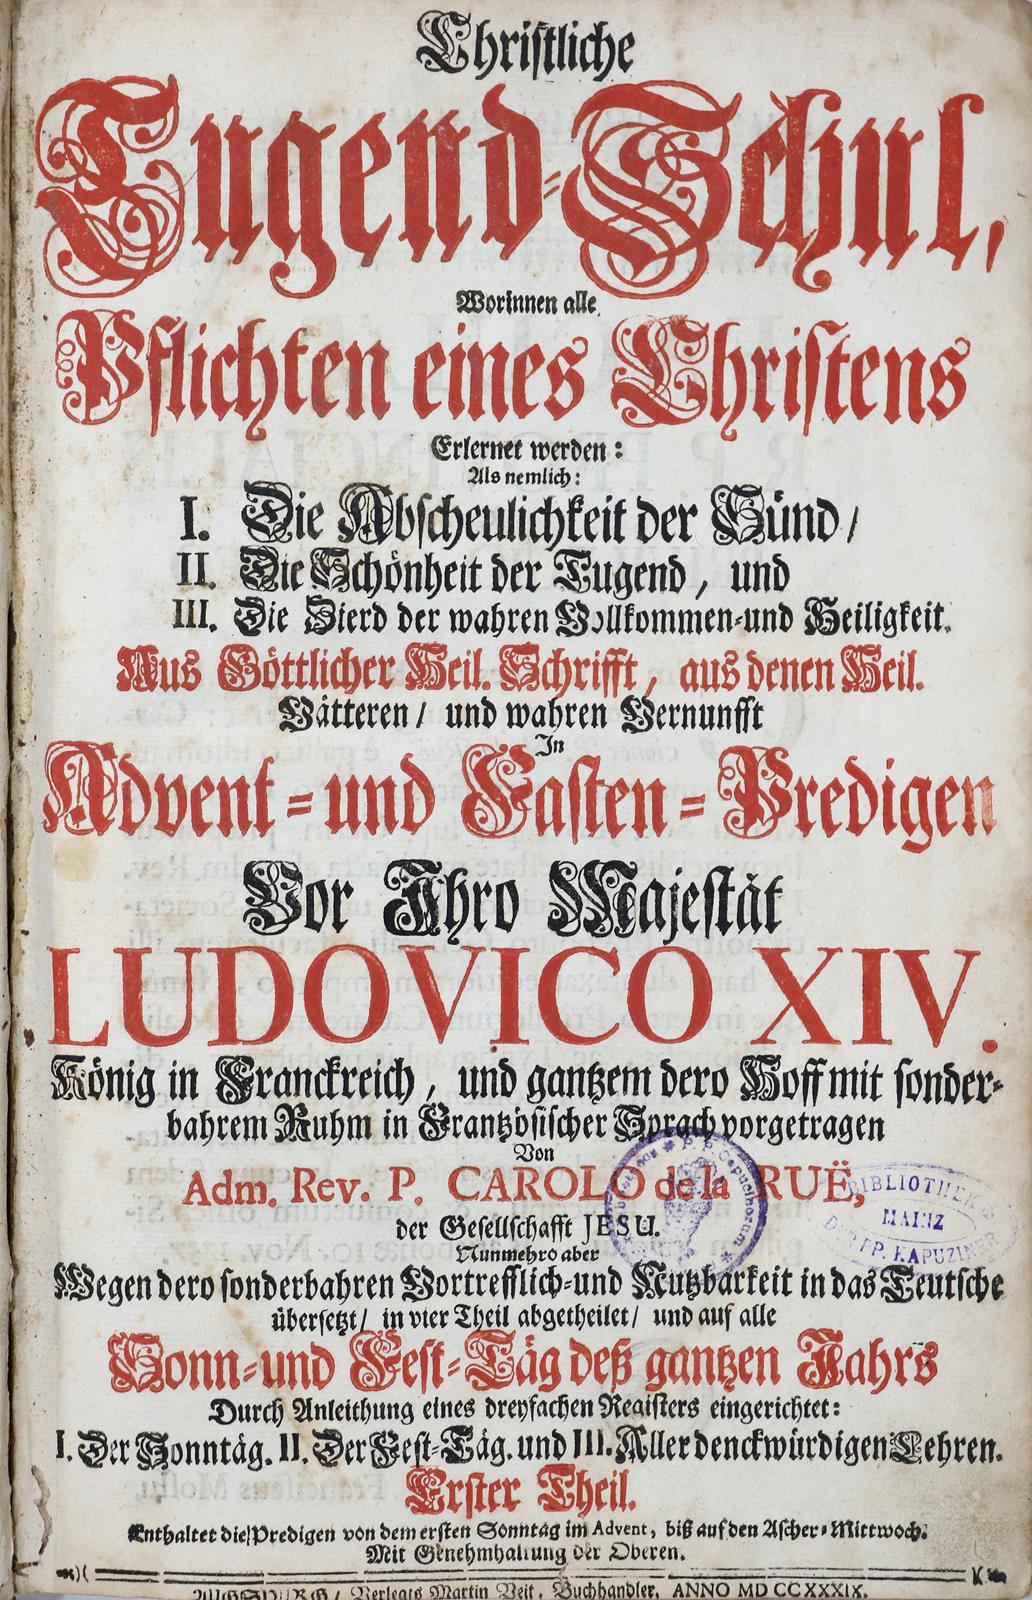 Christliche
Tugend-Schul,
Worinnen alle
Pflichten eines Christens
Erlernet werden:
Als nemlich:
I. Die Abscheulichkeit der Sünd/
II. Die Schönheit der Tugend, und
III. Die Zierd der wahren Vollkommen-und Heiligkeit.
Aus Göttlicher Heil. Schrifft, aus denen Heil.
Vätteren/ und wahren Vernunfft
In
Advent-und Fasten-Predigen
Vor Ihro Majestät
LUDOVICO XIV.
König in Franckreich, und gantzem dero Hoff mit sonder-
bahrem Ruhm in Frantzösischer Sprach vorgetragen
Von
Adm. Rev. P. CAROLO de la RUË,
der Gesellschafft JESU.
Nunmehro aber
Wegen dero sonderbahren Vortrefflich-und Nutzbarkeit in das Teutsche
übersetzt/ in vier Theil abgetheilet/ und auf alle
Sonn-und Fest-Täg deß gantzen Jahrs
Durch Anleithung eines dreyfachen Registers eingerichtet:
I. Der Sonntäg. II. Der Fest-Täg. und III. Aller denckwürdigen Lehren.
Erster Theil.
Enthaltet die Predigen von dem ersten Sonntag im Advent, biß auf den Ascher-Mittwoch.
Mit Genehmhaltung der Oberen.
AUGSPURG/ Verlegts Martin Veit, Buchhandler, ANNO MD CCXXXIX.
P.P. Capucinorum
BIBLIOTHEK
MAINZ
DER PP. KAPUZINER